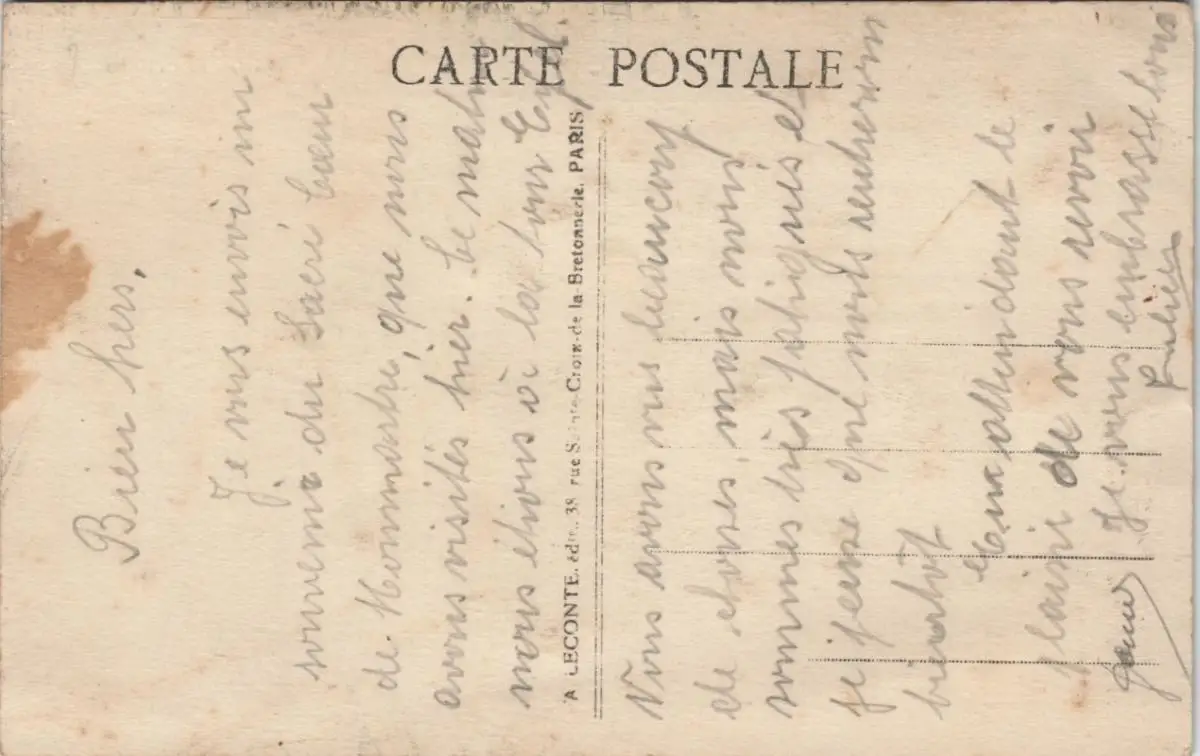 CARTE POSTALE
A LECONTE, édit., 38 rue Sainte-Croix-de-la-Bretonnerie, PARIS
Bien chers,
Je vous envois un
souvenir du Sacré Cœur
de Monmartre, que nous
avons visités hier. Ce matin
nous étions à la tour Eiffel
Nous avons vus beaucoup
de choses, mais nous
sommes très fatigués et
je pense que nous rentrerons
bientôt
En attendant le
plaisir de vous revoir
Je vous embrasse tous